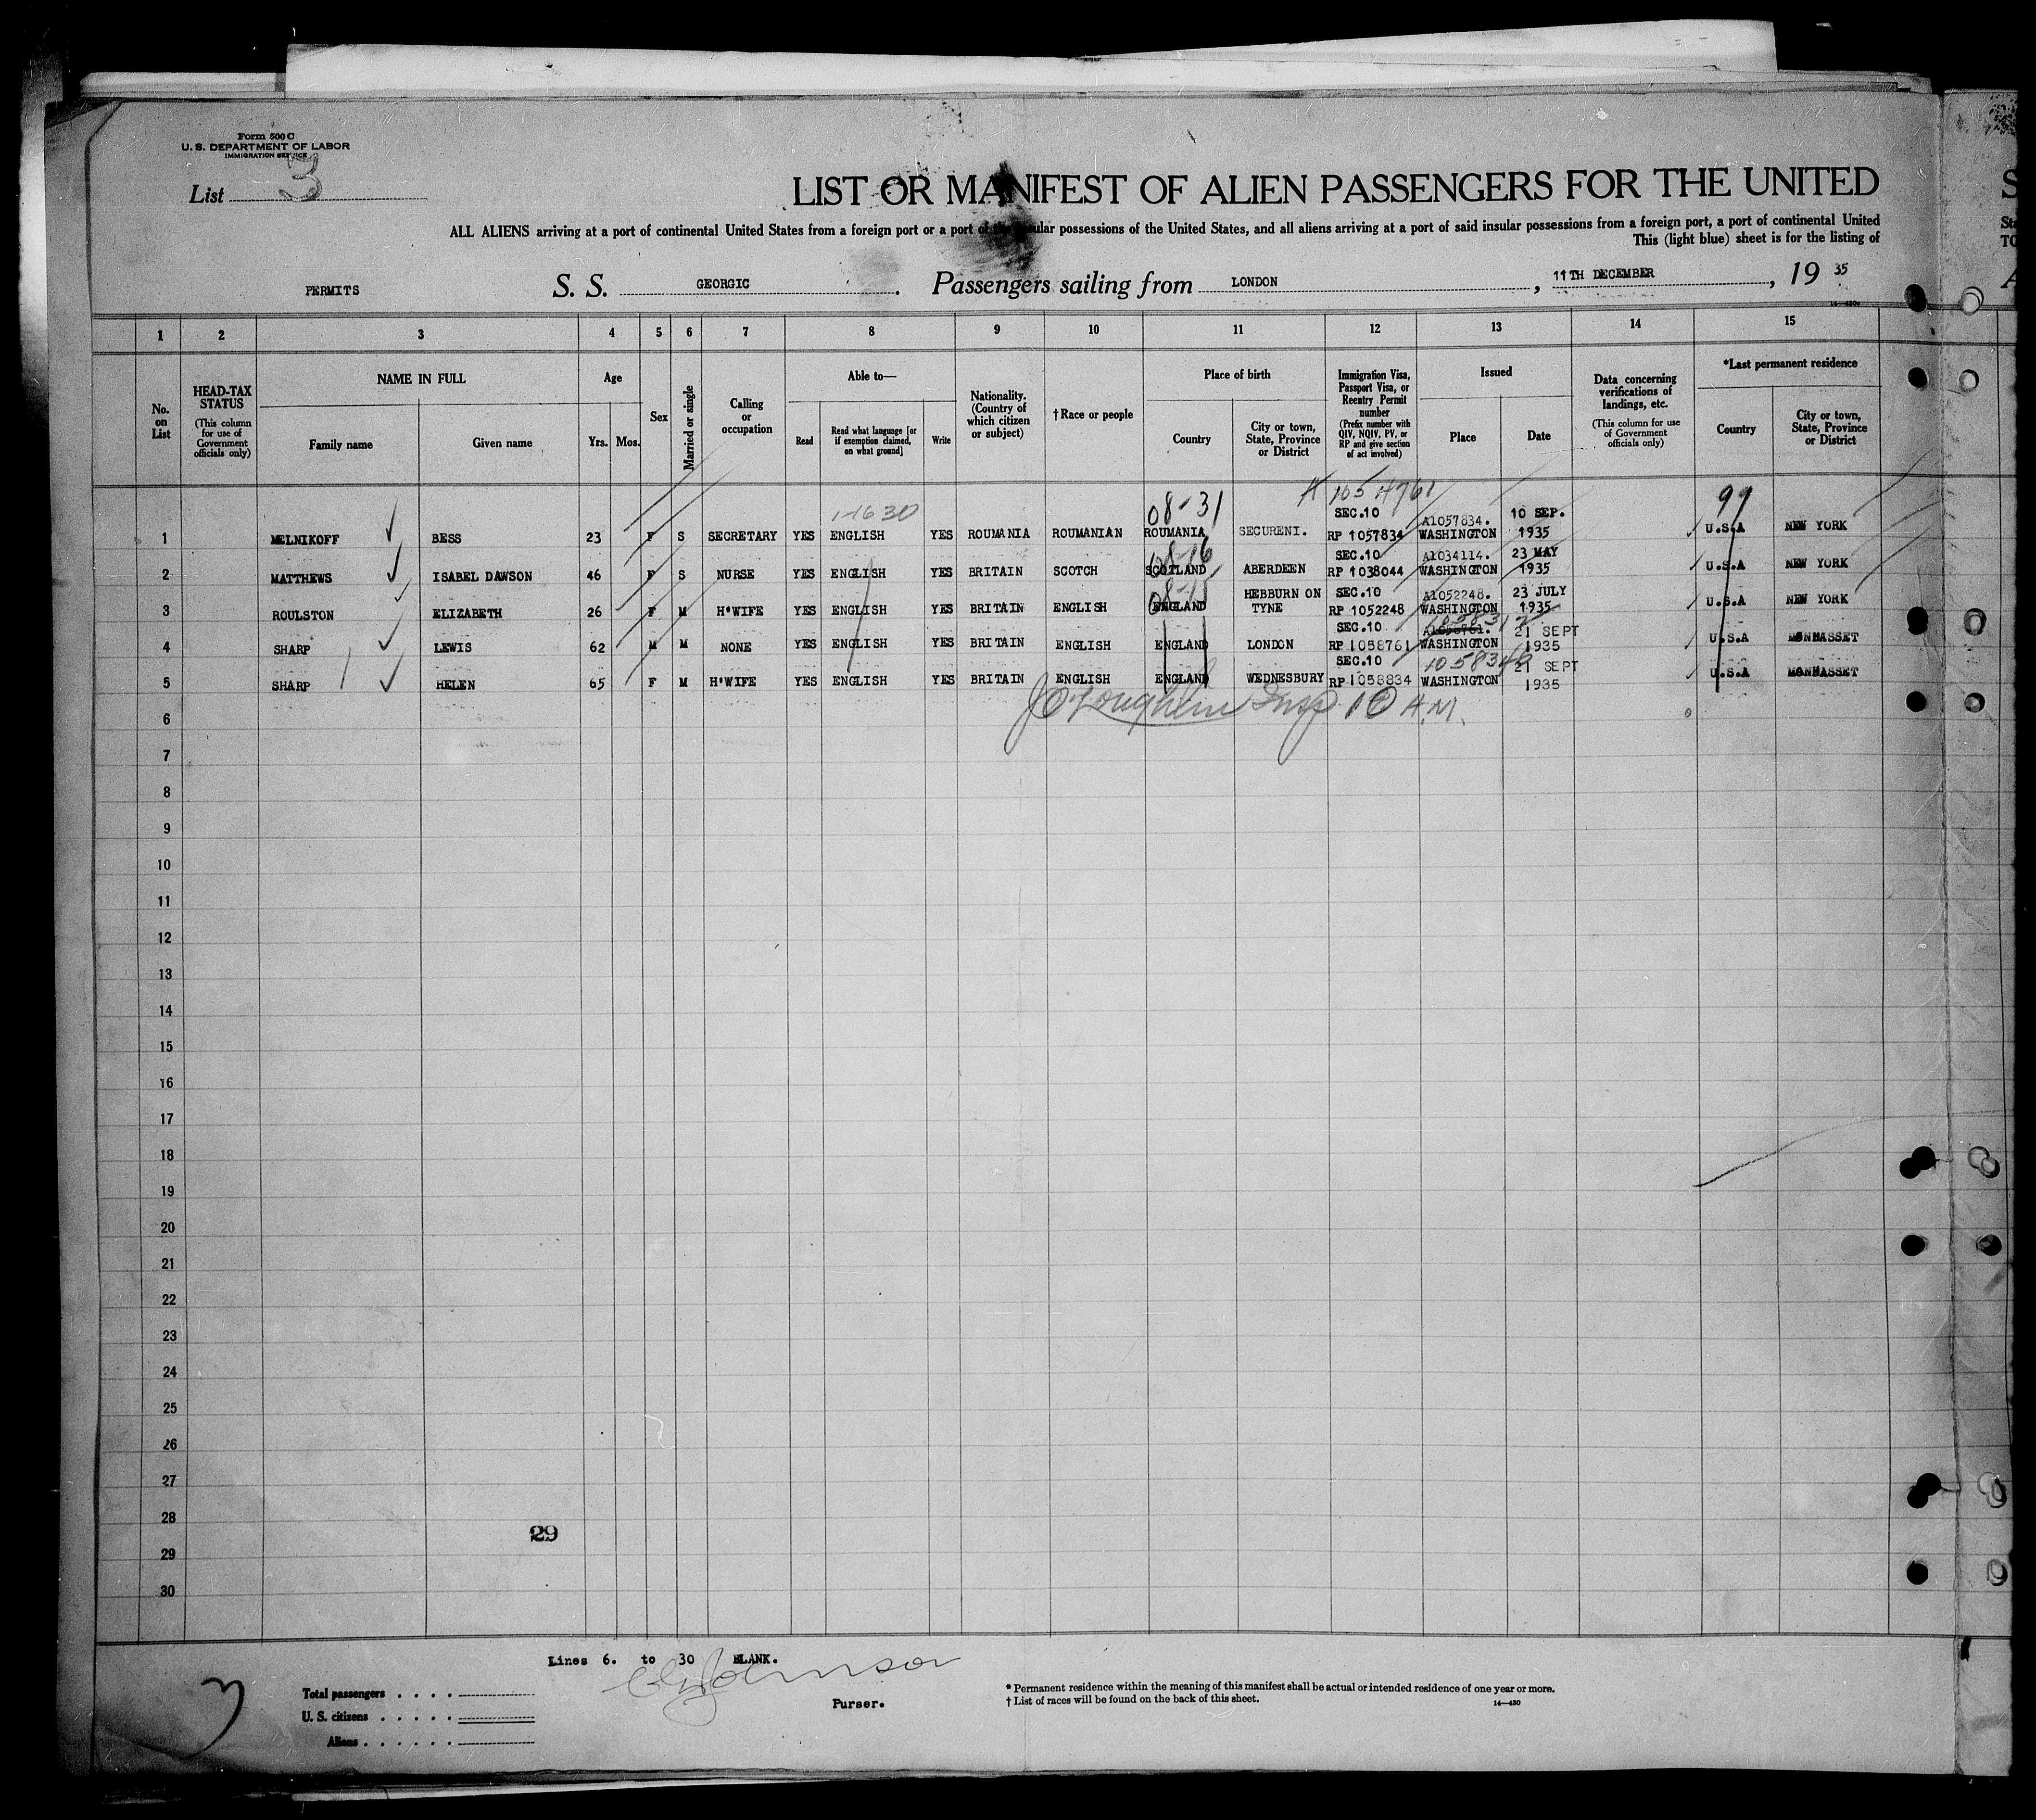 Form 500 C
U. S. DEPARTMENT OF LABOR
IMMIGRATION SERVICE
List 3
LIST OR MANIFEST OF ALIEN PASSENGERS FOR THE UNITED
ALL ALIENS arriving at a port of continental United States from a foreign port or a port of the insular possessions of the United States, and all aliens arriving at a port of said insular possessions from a foreign port, a port of continental United
This (light blue) sheet is for the listing of
PERMITS S. S. GEORGIC. Passengers sailing from LONDON, 11TH DECEMBER, 19 35
1 2 3 4 5 6 7 8 9 10 11 12 13 14 15
No. on List
HEAD-TAX STATUS (This column for use of Government officials only)
NAME IN FULL
Family name Given name
Age
Yrs. Mos.
Sex
Married or single
Calling or occupation
Able to—
Read Read what language [or if exemption claimed, on what ground] Write
Nationality. (Country of which citizen or subject)
†Race or people
Place of birth
Country City or town, State, Province or District
Immigration Visa, Passport Visa, or Reentry Permit number (Prefix number with QIV, NQIV, PV, or RP and give section of act involved)
Issued
Place Date
Data concerning verifications of landings, etc. (This column for use of Government officials only)
*Last permanent residence
Country City or town, State, Province or District
1-1630 08-31 99
1 MELNIKOFF BESS 23 F S SECRETARY YES ENGLISH YES ROUMANIA ROUMANIAN ROUMANIA SECURENI. SEC.10 RP 1057834 A1057834. WASHINGTON 10 SEP. 1935 U.S.A NEW YORK
08-16
2 MATTHEWS ISABEL DAWSON 46 F S NURSE YES ENGLISH YES BRITAIN SCOTCH SCOTLAND ABERDEEN SEC.10 RP 1038044 A1034114. WASHINGTON 23 MAY 1935 U.S.A NEW YORK
08-15
3 ROULSTON ELIZABETH 26 F M H'WIFE YES ENGLISH YES BRITAIN ENGLISH ENGLAND HEBBURN ON TYNE SEC.10 RP 1052248 A1052248. WASHINGTON 23 JULY 1935 U.S.A NEW YORK
4 SHARP LEWIS 62 M M NONE YES ENGLISH YES BRITAIN ENGLISH ENGLAND LONDON SEC.10 RP 1058761 A1058761. WASHINGTON 21 SEPT 1935 U.S.A MONHASSET
5 SHARP HELEN 65 F M H'WIFE YES ENGLISH YES BRITAIN ENGLISH ENGLAND WEDNESBURY SEC.10 RP 1058834 WASHINGTON 21 SEPT 1935 U.S.A MONHASSET
6 Insp 10 A.M.
7
8
9
10
11
12
13
14
15
16
17
18
19
20
21
22
23
24
25
26
27
28
29
29
30
Lines 6. to 30 BLANK.
Johnson
Purser.
3
Total passengers
U. S. citizens
Aliens
* Permanent residence within the meaning of this manifest shall be actual or intended residence of one year or more.
† List of races will be found on the back of this sheet.
14—430